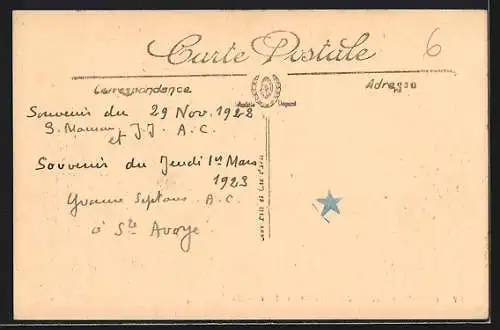 Carte Postale
6
Correspondance
Adresse
Souvenir du 29 Nov. 1928
et J.J. A.C.
Souvenir du Jeudi 1er Mars
1923
Yvonne A.C.
à Ste Avoye